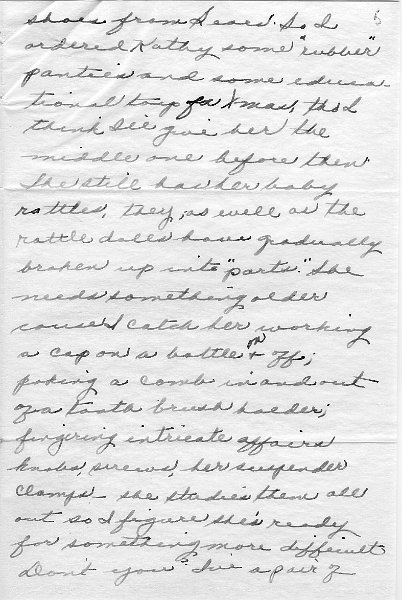 5
shoes from Sears. So I
ordered Kathy some "rubber"
panties and some educa-
tional toys for Xmas, tho I
think I'll give her the
middle one before then.
She still has her baby
rattles, they, as well as the
rattle dolls have gradually
broken up into "parts." She
needs something older
cause I catch her working
a cap on a bottle on & off;
poking a comb in and out
of a tooth brush holder;
fingering intricate affairs
knobs, screws, her suspender
clamps - she studies them all
out so I figure she's ready
for something more difficult.
Don't you? I've a pair of